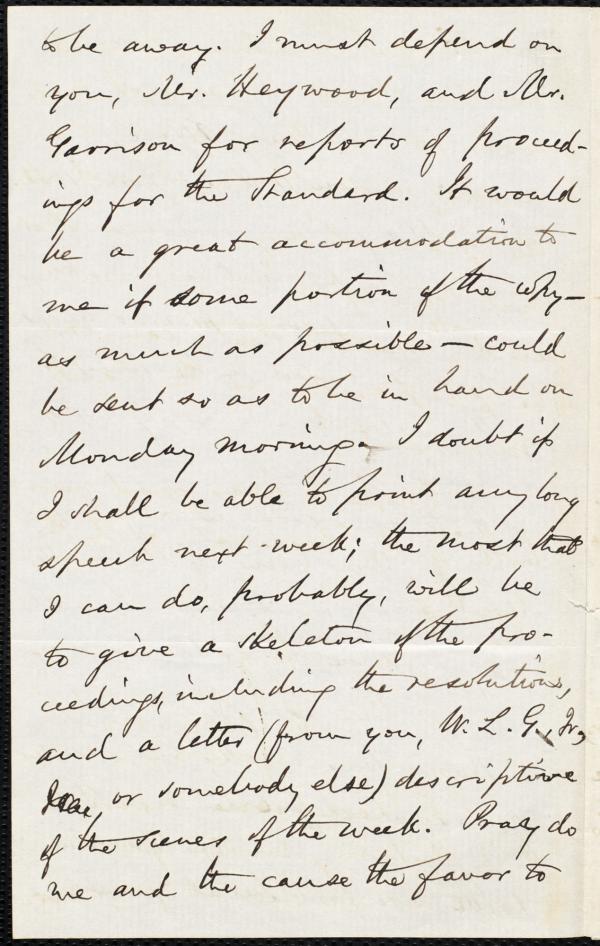 to be away. I must depend on
you, Mr. Heywood, and Mr.
Garrison for reports of proceed-
ings for the Standard. It would
be a great accommodation to
me if some portion of the copy—
as much as possible — could
be sent so as to be in hand on
Monday morning. I doubt if
I shall be able to print any long
speech next week; the most that
I can do, probably, will be
to give a skeleton of the pro-
ceedings, including the resolutions,
and a letter (from you, W. L. G., Jr.,
or somebody else) descriptive
of the scenes of the week. Pray do
me and the cause the favor to